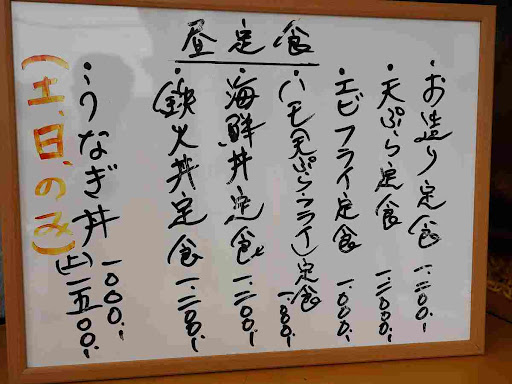 昼定食
・お造り定食 一.二〇〇.
・天ぷら定食 一.二〇〇.
・エビフライ定食 一.〇〇〇.
・ハモ(天ぷら・フライ)定食 一.〇〇〇.
・海鮮丼定食 一.二〇〇.
・鉄火丼定食 一.二〇〇.
・うなぎ丼 一.〇〇〇.
(上)一.五〇〇.
(土、日、のみ)